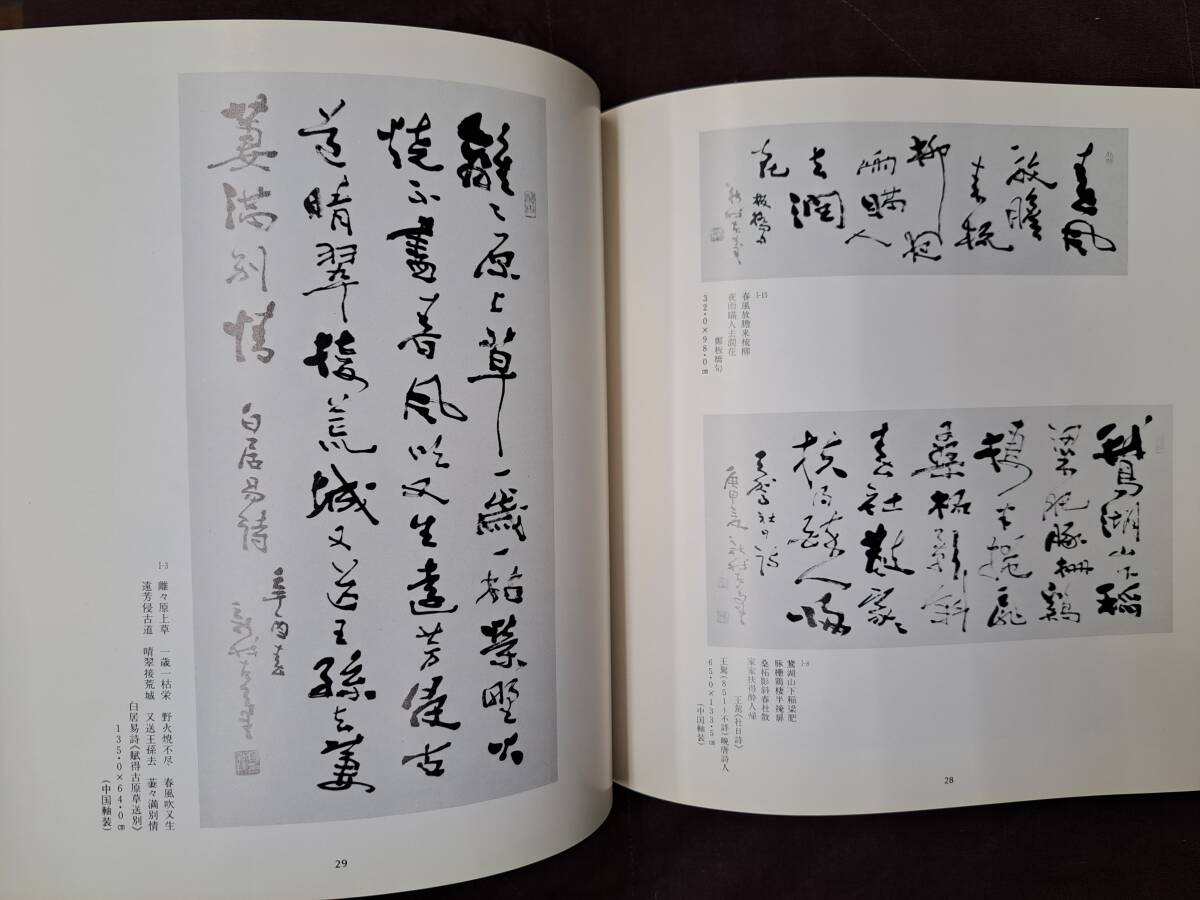 春風
放膽
来梳
柳夜
雨瞞人
去潤
花 板橋句
1-15
春風放膽来梳柳
夜雨瞞人去潤花
鄭板橋句
32・0×98・0㎝
鵞湖山下稲
粱肥豚柵鶏
棲半掩扉
桑柘影斜
春社散家々
扶得酔人帰
王駕社日詩
1-8
鵞湖山下稲粱肥
豚柵鶏棲半掩扉
桑柘影斜春社散
家家扶得酔人帰
王駕《社日詩》
王駕(851〜不詳)晩唐詩人
65・0×133・5㎝
(中国軸装)
28
離々原上草一歳一枯榮野火
焼不盡春風吹又生遠芳侵古
道晴翠接荒城又送王孫去萋
萋満別情 白居易詩 辛酉春
1-3
離々原上草 一歳一枯栄 野火焼不尽 春風吹又生
遠芳侵古道 晴翠接荒城 又送王孫去 萋々満別情
白居易詩《賦得古原草送別》
135・0×64・0㎝
(中国軸装)
29